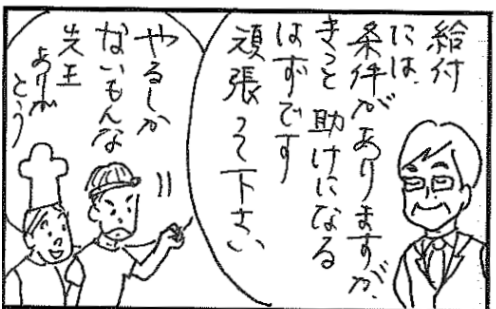 給付
には、
条件がありますが、
きっと助けになる
はずです
頑張って下さい
やるしか
ないもんな
先生
ありが
とう